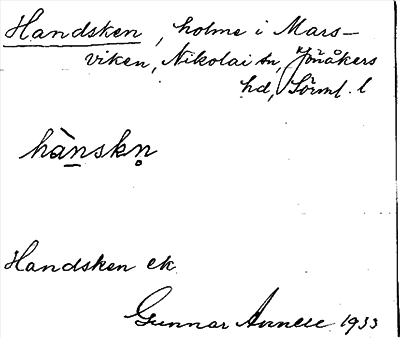 Handsken, holme i Mars-
viken, Nikolai sn, Jönåkers
hd, Sörml. l
hànskn̥
Handsken ek
Gunnar 1933